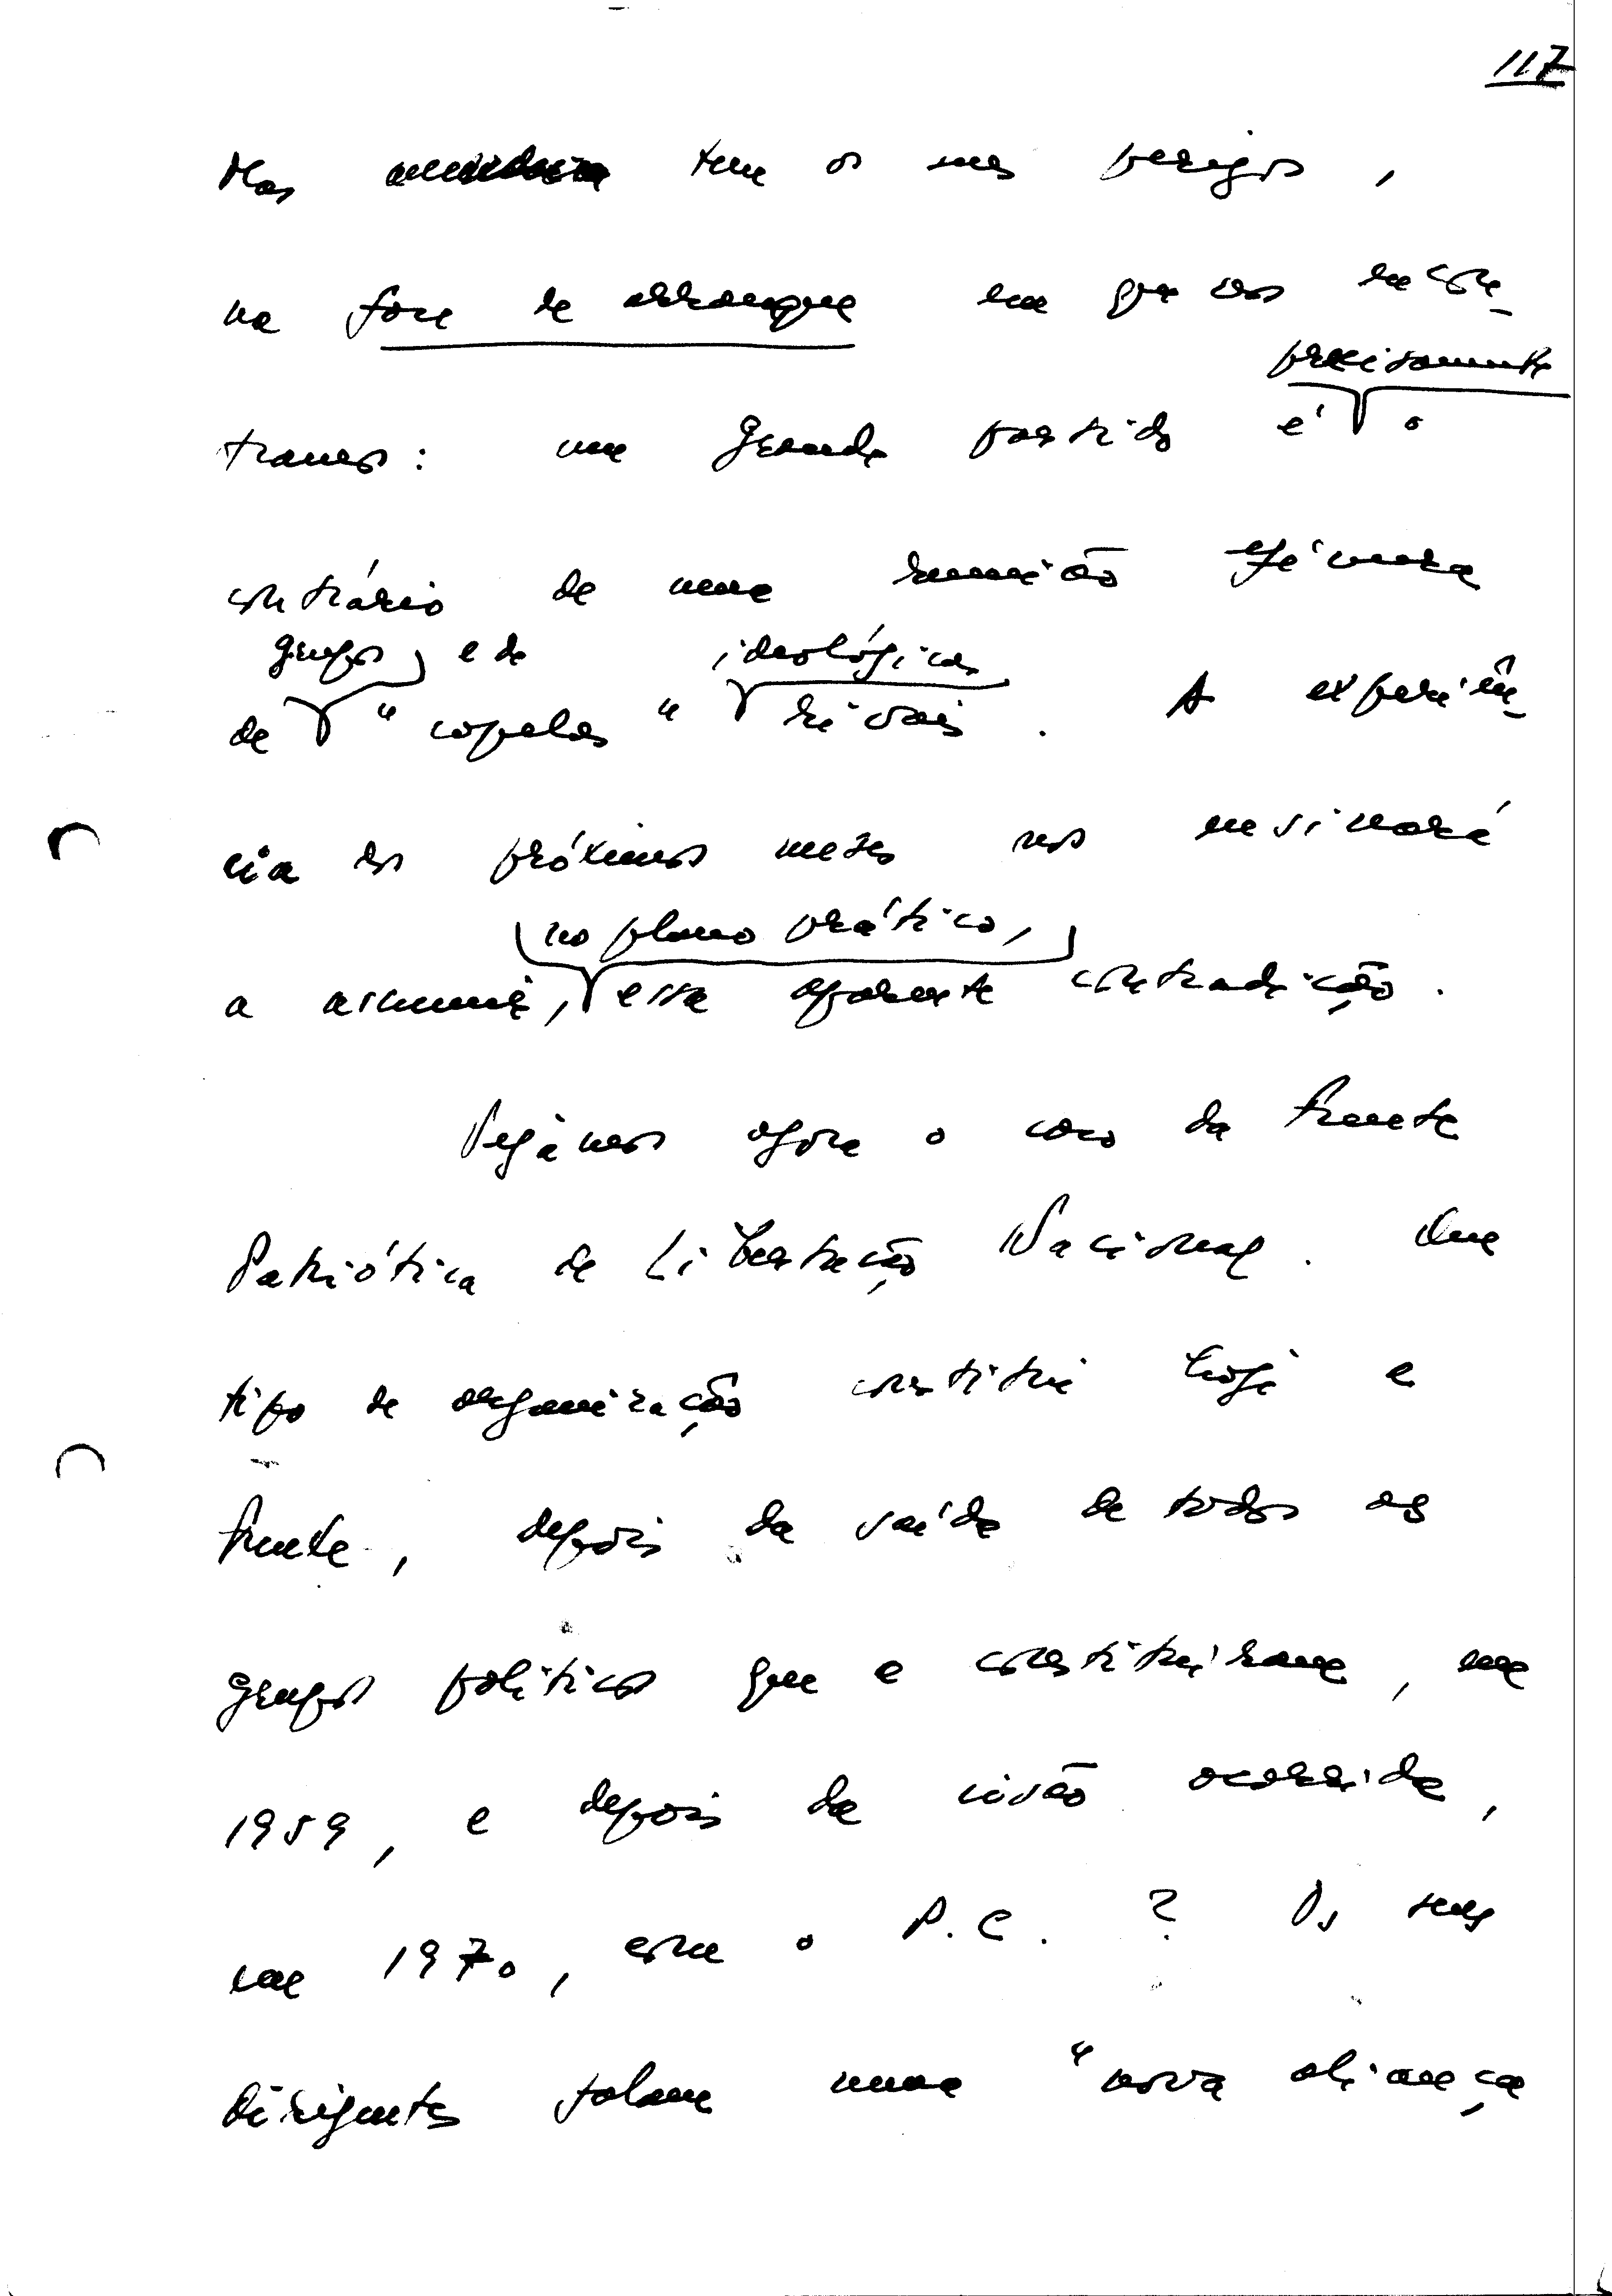 117
Mas tem os seus perigos,
na fase de arranque em que nos encon-
precisamente
tramos: um grande partido é o
contrário de uma reunião efémera
grupos, e de ideológicas
de "capelas" rivais. A experiên-
cia dos próximos meses nos ensinará
no plano prático,
a assumir, essa aparente contradição.
Vejamos agora o caso da Frente
Patriótica de Libertação Nacional. Que
tipo de organização constitui hoje a
Frente, depois da saída de todos os
grupos políticos que a constituíram, em
1959, e depois da cisão ocorrida,
em 1970, com o P.C.? Os seus
dirigentes falam numa "nova aliança